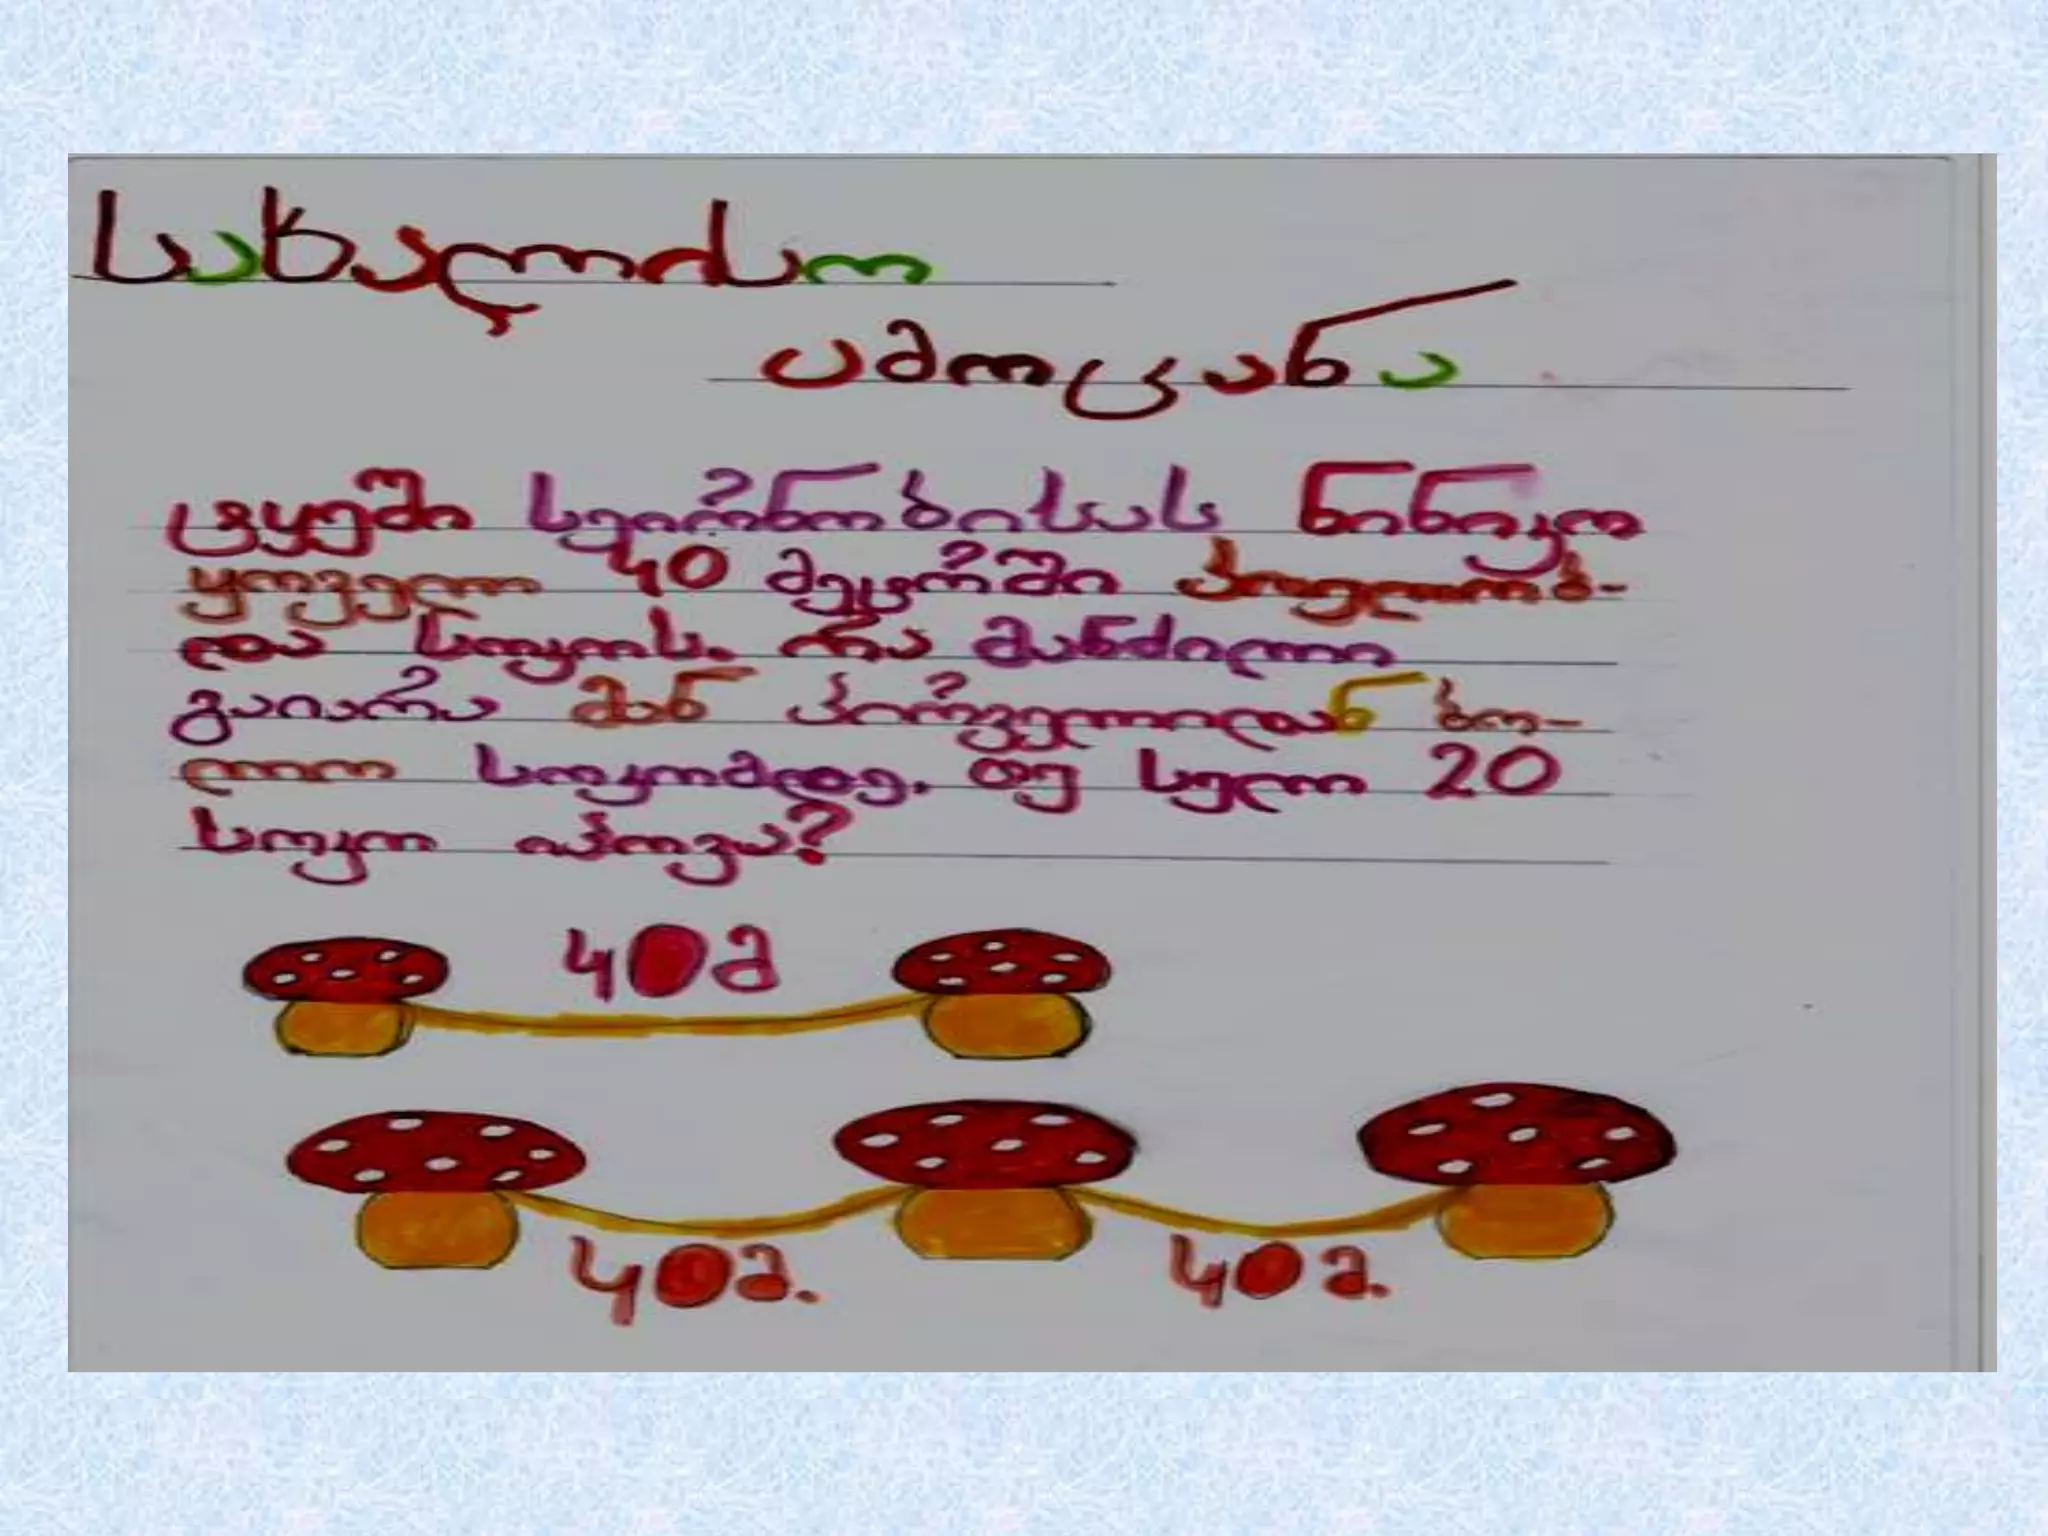 სახალისო
ამოცანა
ტყეში სეირნობისას ნინიკო
ყოველ 40 მეტრში პოულობ-
და სოკოს. რა მანძილი
გაიარა მან პირველიდან ბო-
ლო სოკომდე, თუ სულ 20
სოკო იპოვა?
40მ
40მ. 40მ.